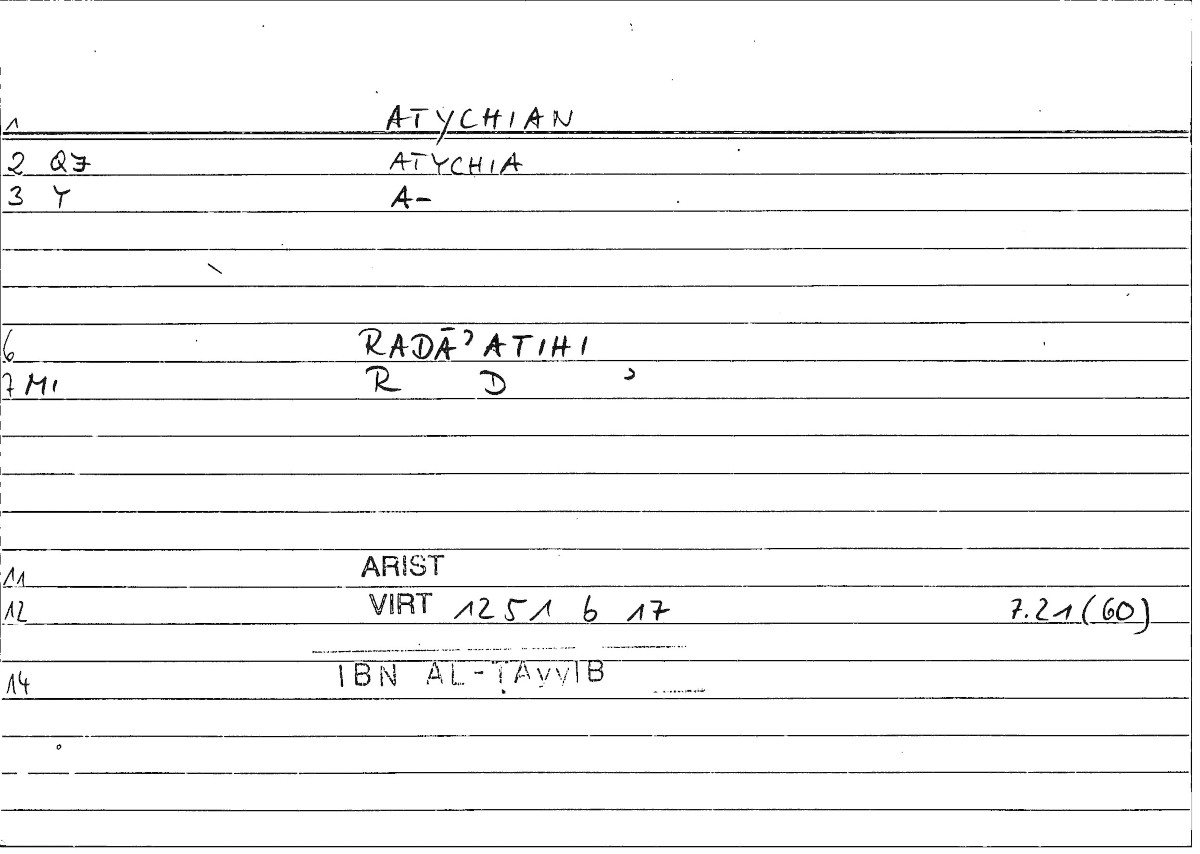 1 ATYCHIAN
2 QJ ATYCHIA
3 Y A-
6 RADĀʾATIHI
7 MI R D ʾ
11 ARIST
12 VIRT 1251 b 17 7.21 (60)
14 IBN AL-ṬAYYIB